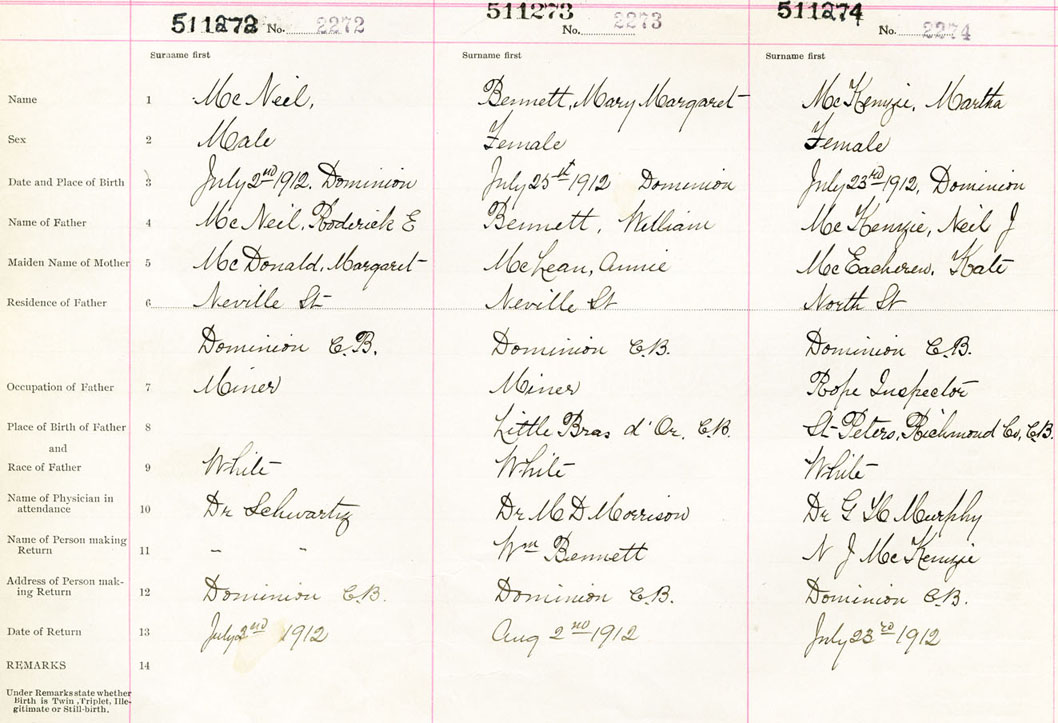 511272 No. 2272 511273 No. 2273 511274 No. 2274
Surname first Surname first Surname first
Name 1 McNeil, Bennett, Mary Margaret McKenzie, Martha
Sex 2 Male Female Female
Date and Place of Birth 3 July 2nd 1912. Dominion July 25th 1912 Dominion July 23rd 1912, Dominion
Name of Father 4 McNeil, Roderick E Bennett, William McKenzie, Neil J
Maiden Name of Mother 5 McDonald, Margaret McLean, Annie McEacheren, Kate
Residence of Father 6 Neville St Neville St North St
Dominion C.B. Dominion C.B. Dominion C.B.
Occupation of Father 7 Miner Miner Rope Inspector
Place of Birth of Father 8 Little Bras d'Or, C.B. St Peters, Richmond Co, C.B.
and
Race of Father 9 White White White
Name of Physician in
attendance 10 Dr Schwartz Dr M D Morrison Dr G H Murphy
Name of Person making
Return 11 - - Wm Bennett N J McKenzie
Address of Person mak-
ing Return 12 Dominion C.B. Dominion C.B. Dominion C.B.
Date of Return 13 July 2nd 1912 Aug 2nd 1912 July 23rd 1912
REMARKS 14
Under Remarks state whether
Birth is Twin, Triplet, Ille-
gitimate or Still-birth.